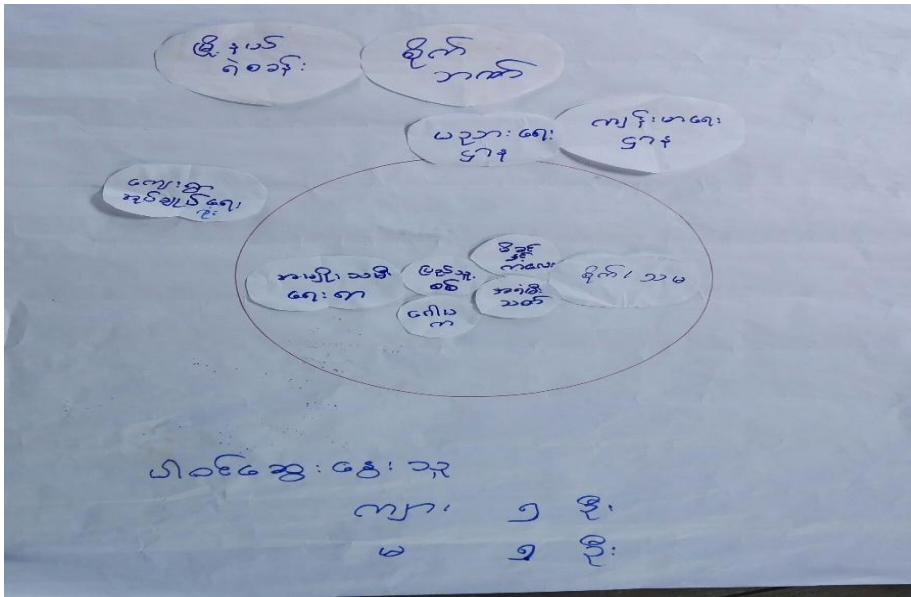 မြို့နယ်
ရဲစခန်း
စိုက်
ဘဏ်
ပညာရေး
ဌာန
ကျန်းမာရေး
ဌာန
ကျေးရွာ
အုပ်ချုပ်ရေး
မှူး
အမျိုးသမီး
ရေးရာ
ပြည်သူ့
စစ်
မိခင်
နှင့်
ကလေး
စိုက်/သမ
အရံမီး
သတ်
ဂေါပ
က
ပါဝင်ဆွေးနွေးသူ
ကျား ၅ ဦး
မ ၅ ဦး